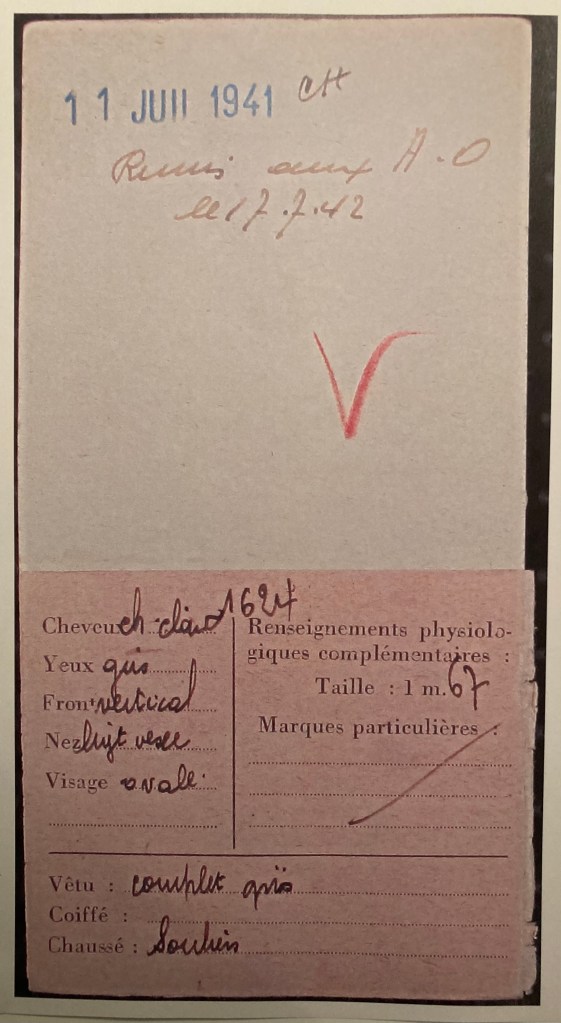 11 JUIL 1941 CH
Remis aux A.O
le 17.7.42
1627
Cheveux ch-clair
Yeux gris
Front vertical
Nez
Visage ovale
Renseignements physiolo-
giques complémentaires :
Taille : 1 m. 67
Marques particulières :
Vêtu : complet gris
Coiffé :
Chaussé : Souliers